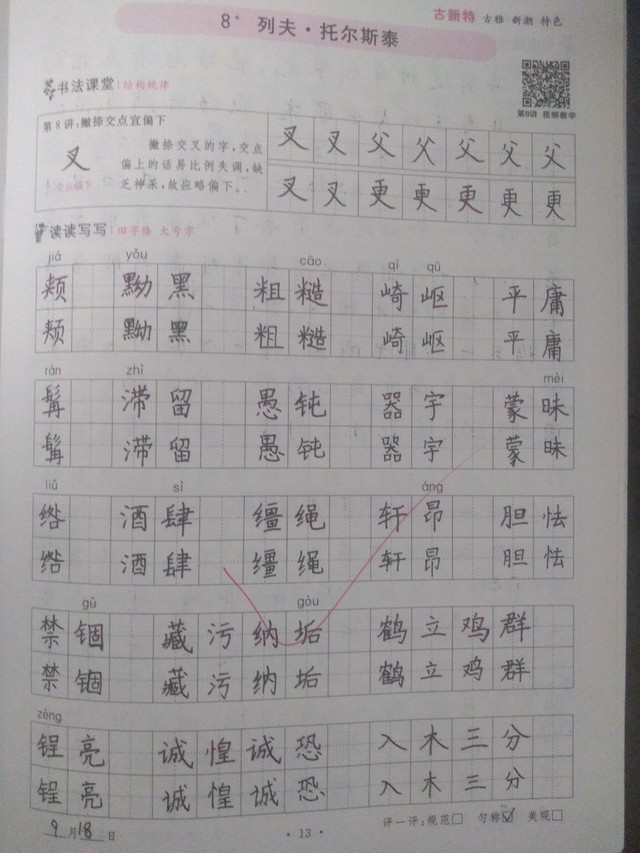 古新特 古雅 新潮 特色
8* 列夫·托尔斯泰
书法课堂 结构规律
第8讲 视频教学
第8讲：撇捺交点宜偏下
叉
交点偏下
撇捺交叉的字，交点
偏上的话易比例失调，缺
乏神采，故应略偏下。
叉 叉 父 父 父 父 父
叉 叉 更 更 更 更 更
读读写写 田字格 大号字
jiá yǒu cāo qí qū
颊 黝黑 粗糙 崎岖 平庸
颊 黝黑 粗糙 崎岖 平庸
rán zhì mèi
髯 滞留 愚钝 器宇 蒙昧
髯 滞留 愚钝 器宇 蒙昧
liǔ sì áng
绺 酒肆 缰绳 轩昂 胆怯
绺 酒肆 缰绳 轩昂 胆怯
gù gòu
禁锢 藏污纳垢 鹤立鸡群
禁锢 藏污纳垢 鹤立鸡群
zèng
锃亮 诚惶诚恐 入木三分
锃亮 诚惶诚恐 入木三分
9月18日
·13·
评一评：规范□ 匀称☑ 美观□